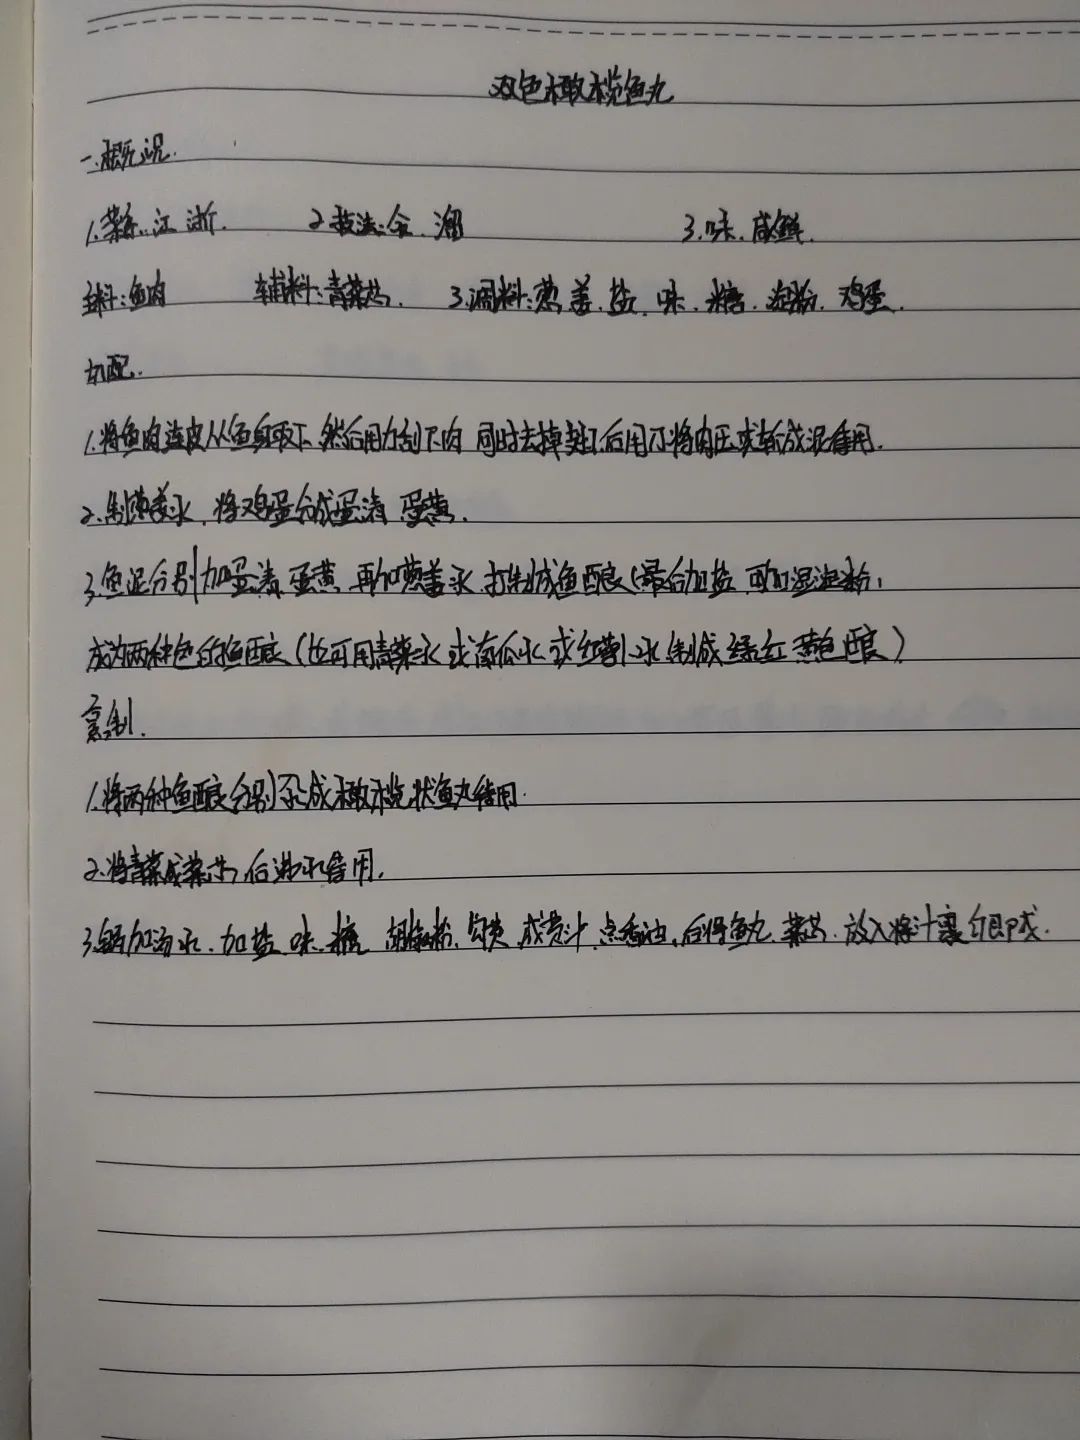 双色橄榄鱼丸
一.概况.
1.菜系:江浙. 2.技法:氽.溜 3.味.咸鲜.
主料:鱼肉 辅料:青菜芯. 3.调料:葱姜.盐.味.糖.淀粉.鸡蛋.
切配.
1.将鱼肉连皮从鱼身取下.然后用力刮下肉 同时去掉 后用刀将肉压或斩成泥备用.
2.制葱姜水.将鸡蛋分成蛋清 蛋黄.
3.鱼泥分别加蛋清 蛋黄 再加葱姜水 打制成鱼酿(最后加盐 可加湿淀粉,
成为两种色的鱼酿(也可用青菜水或南瓜水或红萝卜水制成绿红黄色酿)
烹制.
1.将两种鱼酿分别氽成橄榄状鱼丸备用.
2.将青菜成菜芯,后沸水备用.
3.锅加汤水.加盐.味.糖 胡椒粉.勾芡.成芡汁.点香油.后将鱼丸.菜芯.放入将汁裹匀即成.